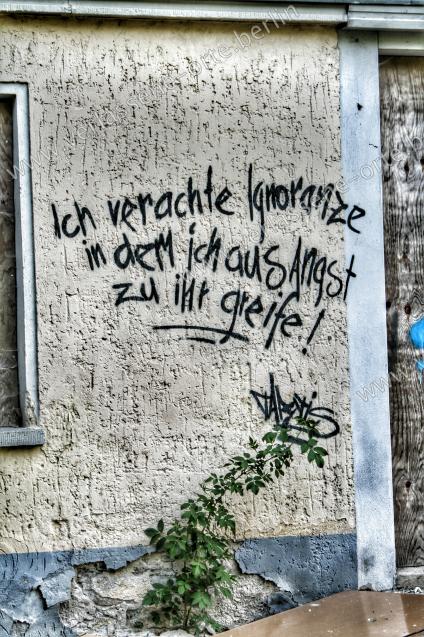 Ich verachte Ignoranze
in dem ich aus Angst
zu ihr greife!